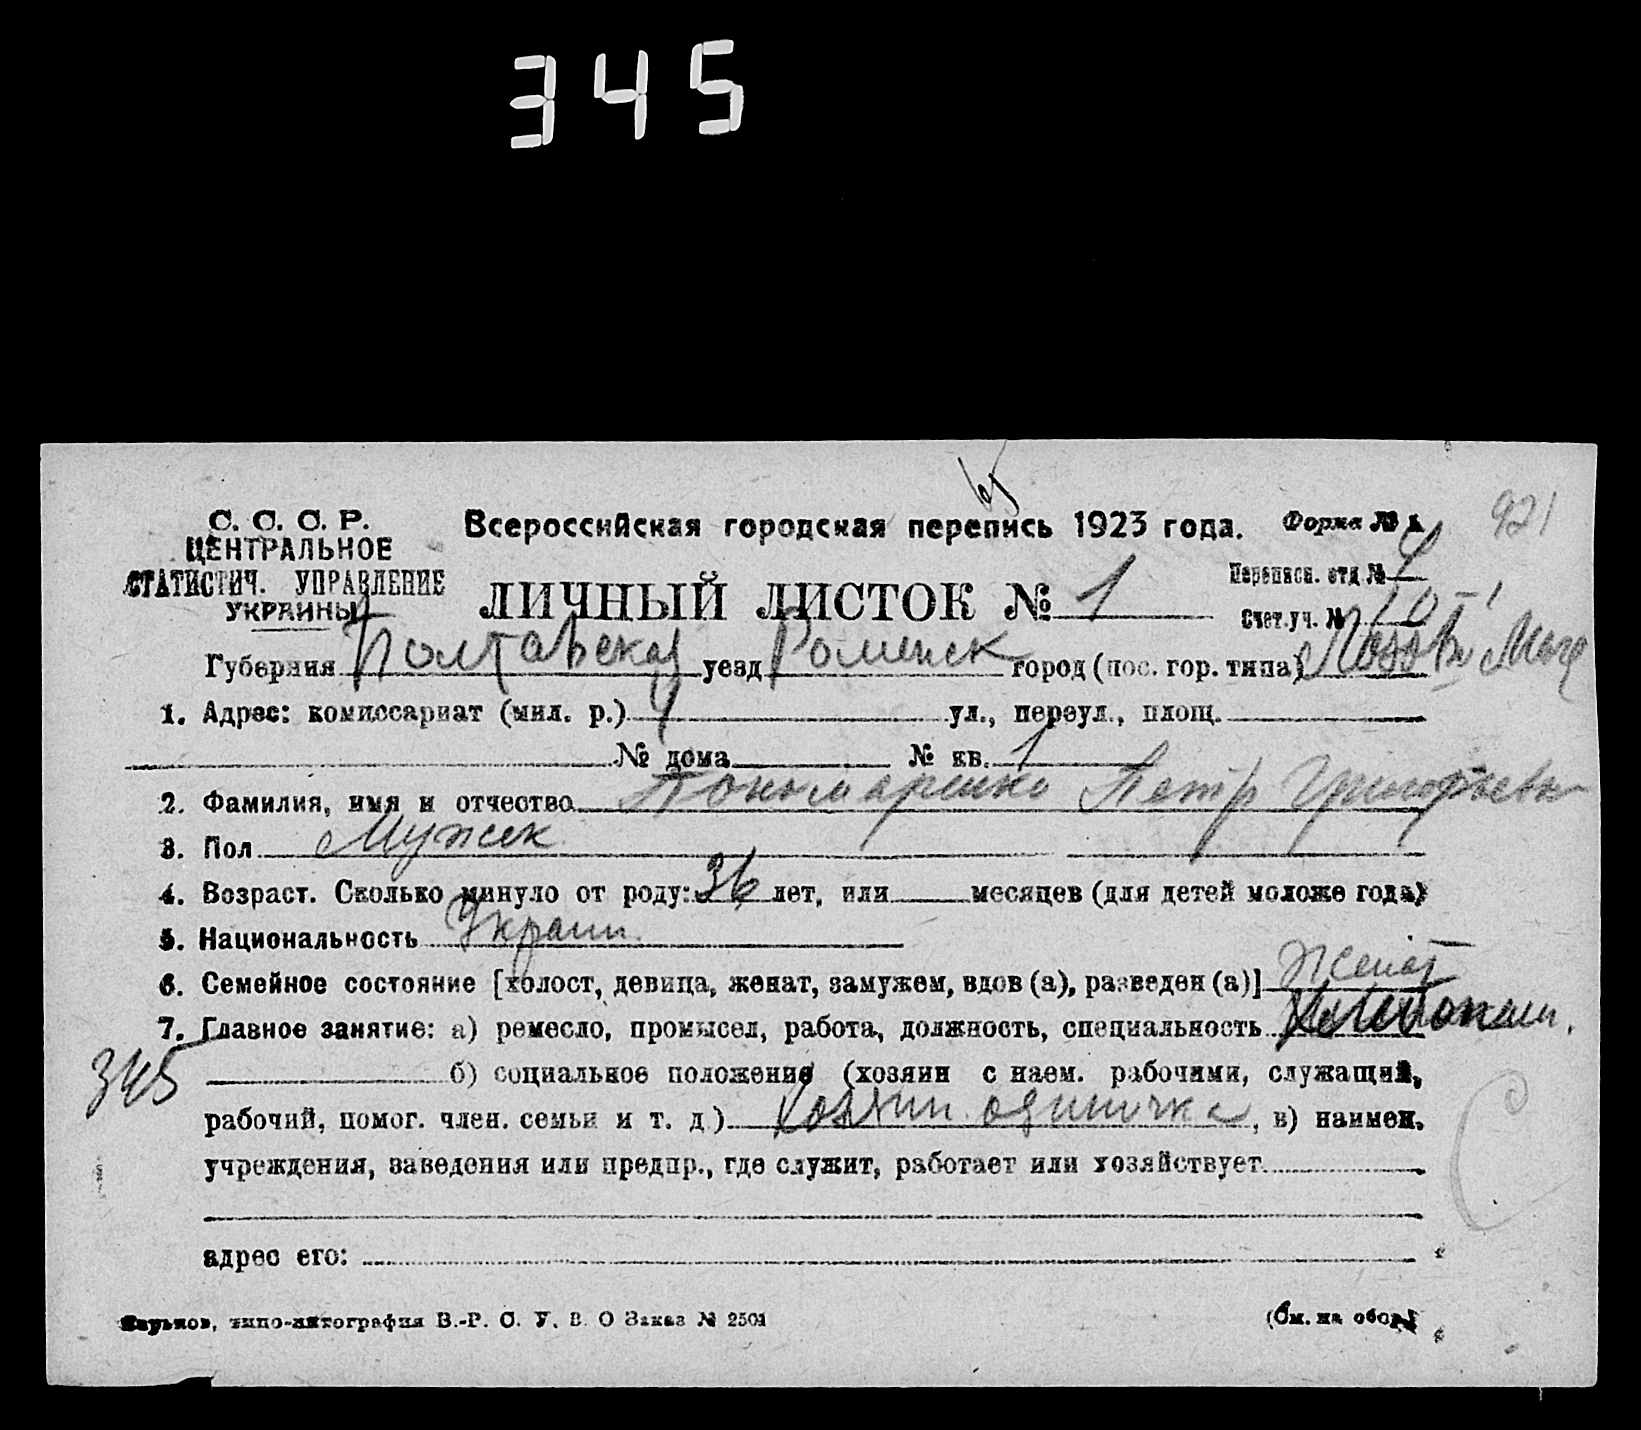 345
65
С. С. С. Р. Всероссийская городская перепись 1923 года. Форма № 1. 921
ЦЕНТРАЛЬНОЕ
СТАТИСТИЧ. УПРАВЛЕНИЕ
УКРАИНЫ
ЛИЧНЫЙ ЛИСТОК № 1
Переписн. отд. № 4
Счет. уч. №
Губерния Полтавская уезд Роменск город (пос. гор. типа)
1. Адрес: комиссариат (мил. р.) 4 ул., переул., площ.
№ дома № кв. 1
2. Фамилия, имя и отчество Пономаренко Петр Григорьевич
3. Пол Мужск
4. Возраст. Сколько минуло от роду: 36 лет, или месяцев (для детей моложе года)
5. Национальность Украин.
6. Семейное состояние [холост, девица, женат, замужем, вдов (а), разведен (а)] Женат
7. Главное занятие: а) ремесло, промысел, работа, должность, специальность
345 б) социальное положение (хозяин с наем. рабочими, служащий,
рабочий, помог. член. семьи и т. д.) Хозяин одиночка, в) наимен.
учреждения, заведения или предпр., где служит, работает или хозяйствует
адрес его:
Харьков, типо-литография В.-Р. С. У. В. О Заказ № 2501 (См. на обор.)